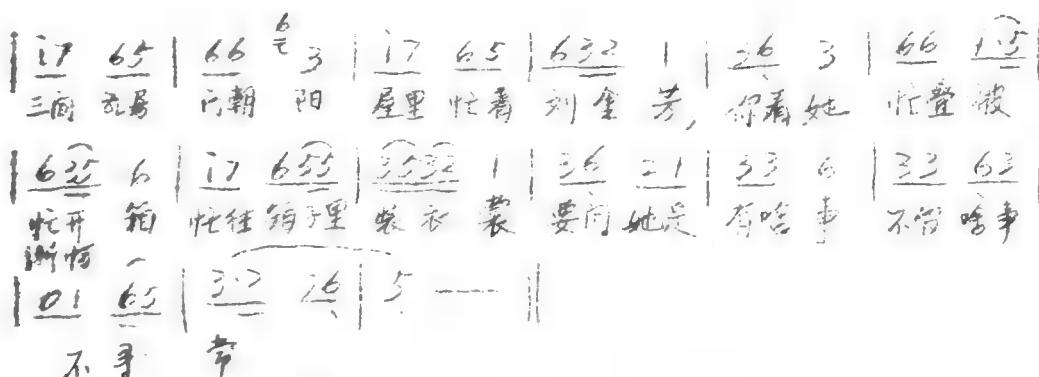 | i7 65 | 66 6 3 | i7 65 | 632 1 | 26 3 | 66 1·5 |
三间 瓦房 门朝 阳 屋里 忙着 刘金 芳, 你看 她 忙叠 被
| 635 6 | i7 655 | 3532 1 | 36 21 | 33 6 | 33 63 |
忙开 箱 忙往 箱子里 装衣 裳 要问 她是 有啥 事 不管 啥事
| 01 65 | 3·2 26 | 5 —— ‖
不寻 常